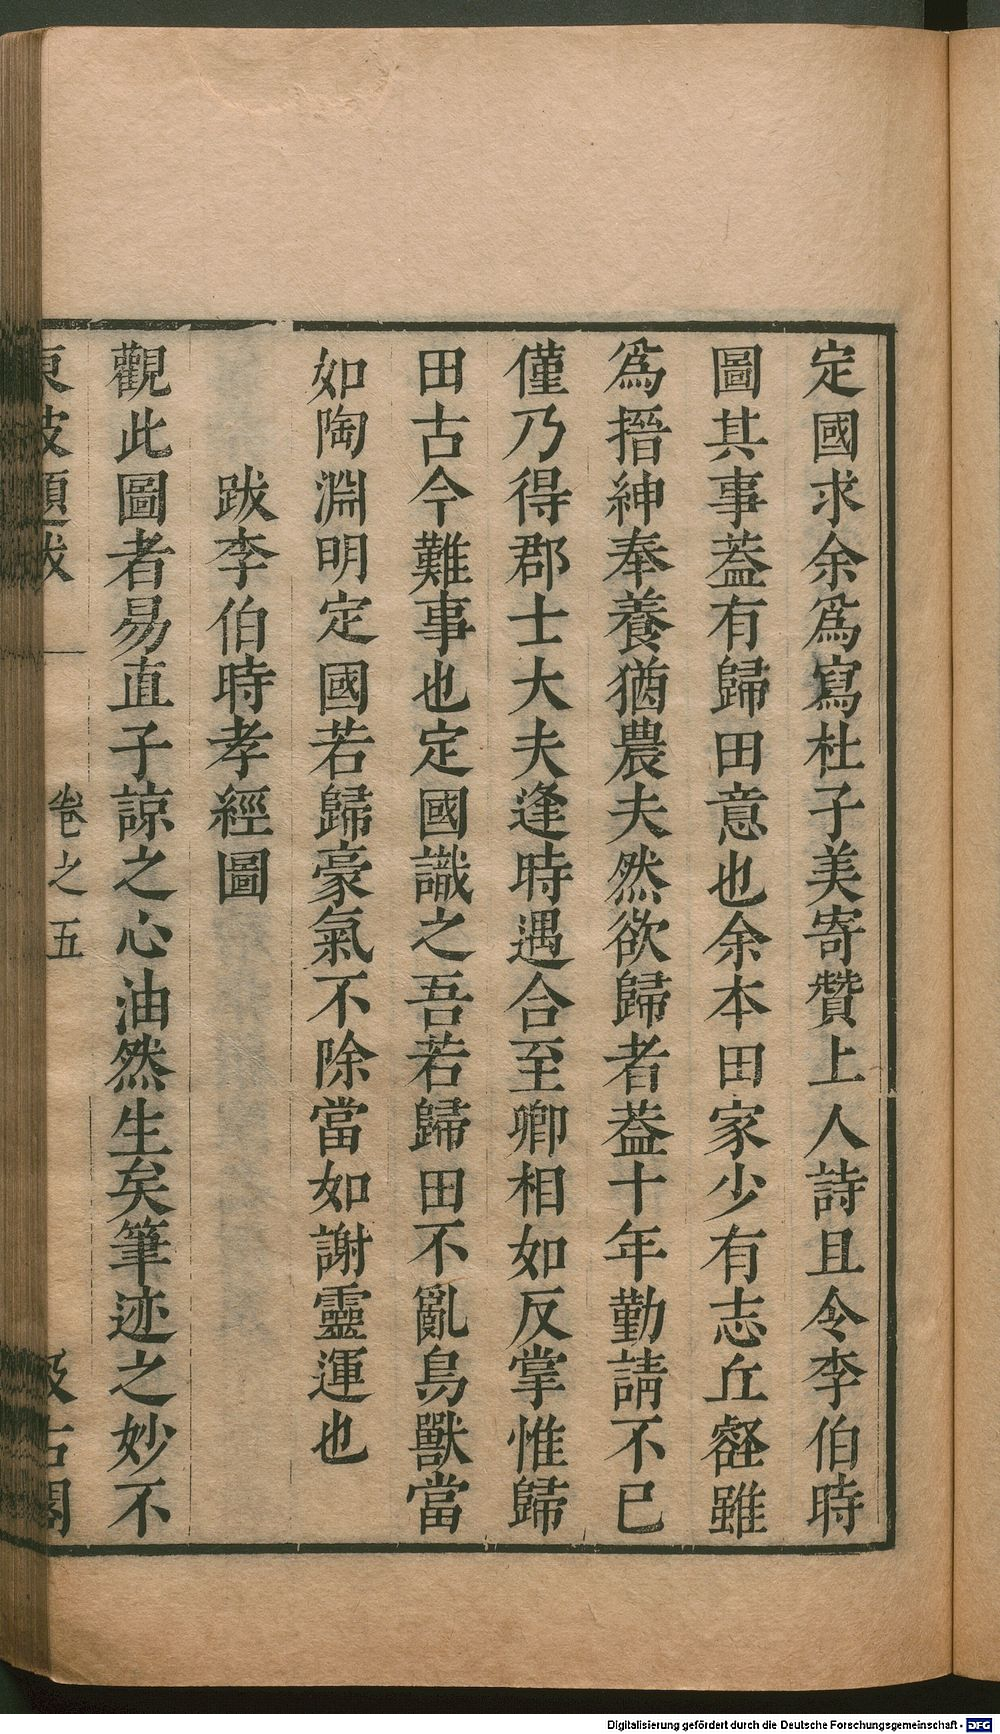 定國求余爲寫杜子美寄贊上人詩且令李伯時
圖其事葢有歸田意也余本田家少有志丘壑雖
爲搢紳奉養猶農夫然欲歸者葢十年勤請不已
僅乃得郡士大夫逢時遇合至卿相如反掌惟歸
田古今難事也定國識之吾若歸田不亂鳥獸當
如陶淵明定國若歸豪氣不除當如謝靈運也
跋李伯時孝經圖
觀此圖者易直子諒之心油然生矣筆迹之妙不
東坡題跋 卷之五 汲古閣
Digitalisierung gefördert durch die Deutsche Forschungsgemeinschaft - DFG